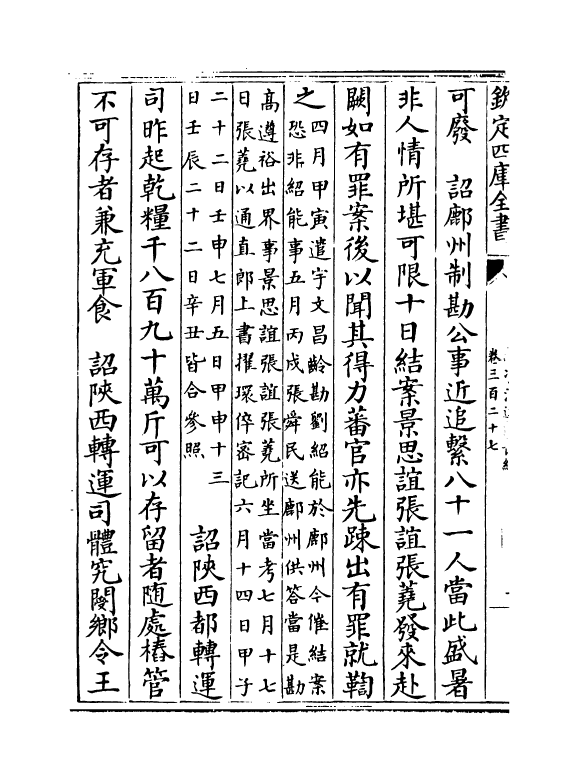 欽定四庫全書
卷三百二十七
可廢　詔鄜州制勘公事近追繫八十一人當此盛暑
非人情所堪可限十日結案景思誼張誼張蕘發來赴
闕如有罪案後以聞其得力蕃官亦先疎出有罪就鞫
之四月甲寅遣宇文昌齡勘劉紹能於鄜州今催結案
恐非紹能事五月丙戌張舜民送鄜州供答當是勘
高遵裕出界事景思誼張誼張蕘所坐當考七月十七
日張蕘以通直郎上書擢環倅密記六月十四日甲子
二十二日壬申七月五日甲申十三
日壬辰二十二日辛丑皆合參照
詔陝西都轉運
司昨起乾糧千八百九十萬斤可以存留者隨處樁管
不可存者兼充軍食　詔陝西轉運司體究閿鄉令王